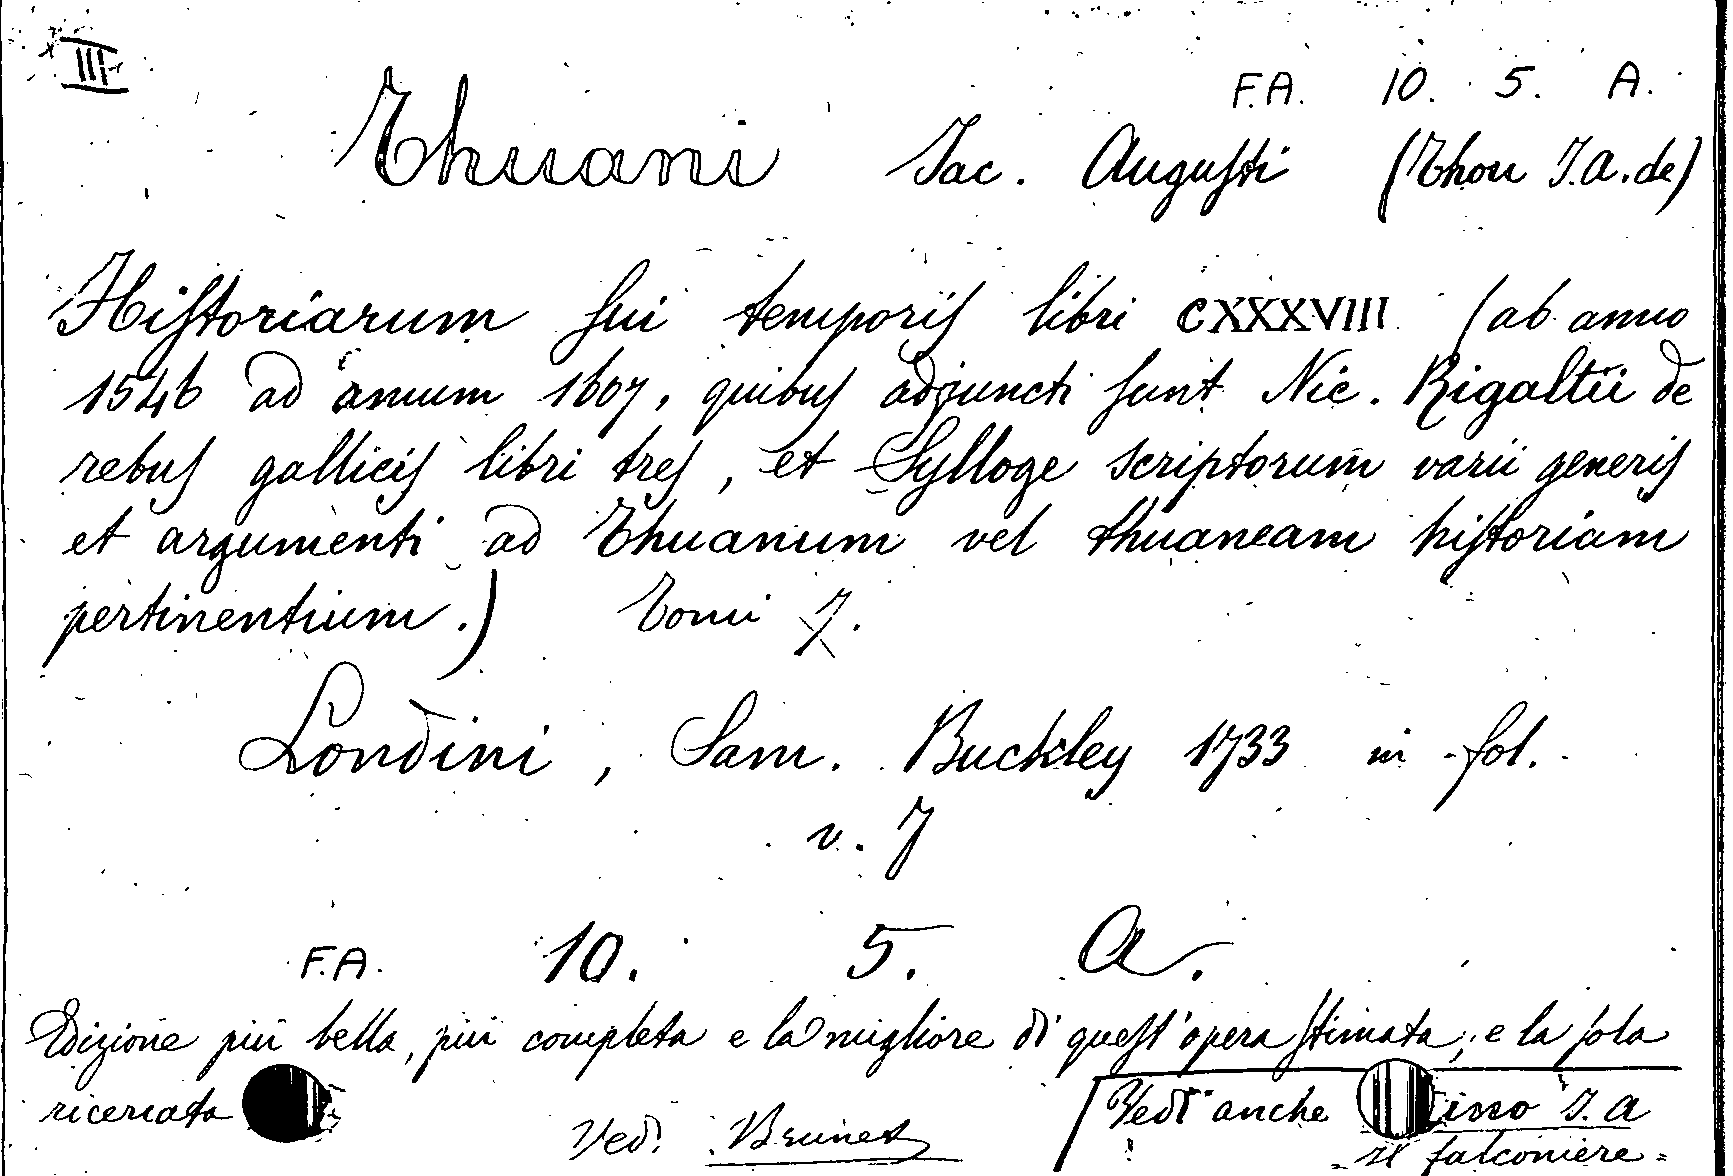 III
F.A. 10. 5. A.
Thuani Jac. Augusti (Thou J.A. de)
Historiarum sui temporis libri CXXXVIII (ab anno
1546 ad annum 1607, quibus adjuncti sunt Nic. Rigaltii de
rebus gallicis libri tres, et Sylloge scriptorum varii generis
et argumenti ad Thuanum vel thuaneam historiam
pertinentium.) Tomi 7.
Londini, Sam. Buckley 1733 in fol.
v. 7
F.A. 10. 5. A.
Edizione più bella, più completa e la migliore di quest'opera stimata, e la sola
ricercata
Vedi anche J. A
Ved. Brunet
- Il falconiere -